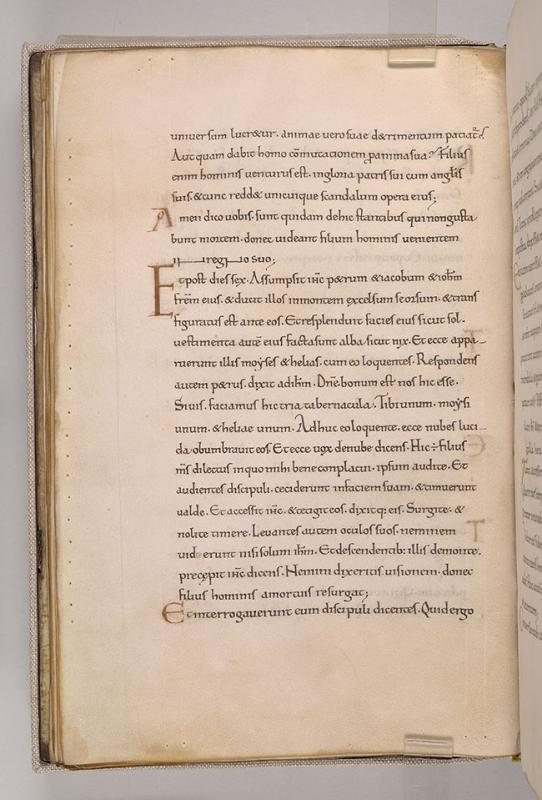 uniuersum lucr&ur. animae uero suae d&rimentum patiat̃?
Aut quam dabit homo cõmutationem p anima sua? Filius
enim hominis uenturus est. in gloria patris sui cum anglis
suis. & tunc redd& unicuique secundum opera eius;
Amen dico uobis. sunt quidam de hic stantibus qui non gusta
bunt mortem. donec uideant filium hominis uenientem
in regno suo;
Et post dies sex. Assumpsit ihc p&rum & iacobum & iohñ
frẽm eius. & ducit illos in montem excelsum seorsum. & trans
figuratus est ante eos. Et resplenduit facies eius sicut sol.
uestimenta autẽ eius facta sunt alba sicut nix. Et ecce appa
ruerunt illis moyses & helias. cum eo loquentes. Respondens
autem p&rus. dixit ad ihm̃. Dñe. bonum est nos hic esse.
Si uis. faciamus hic tria tabernacula. Tibi unum. moysi
unum. & heliae unum. Adhuc eo loquente. ecce nubes luci
da obumbrauit eos. Et ecce uox de nube dicens. Hic ÷ filius
m̃s dilectus in quo mihi bene complacui. ipsum audite. Et
audientes discipuli. ceciderunt in faciem suam. & timuerunt
ualde. Et accessit ihc. & tetigit eos. dixitq; eis. Surgite. &
nolite timere. Leuantes autem oculos suos. neminem
uiderunt nisi solum ihm̃. Et descendentib; illis de monte.
precepit ihc dicens. Nemini dixeritis uisionem. donec
filius hominis a mortuis resurgat;
Et interrogauerunt eum discipuli dicentes. Quid ergo